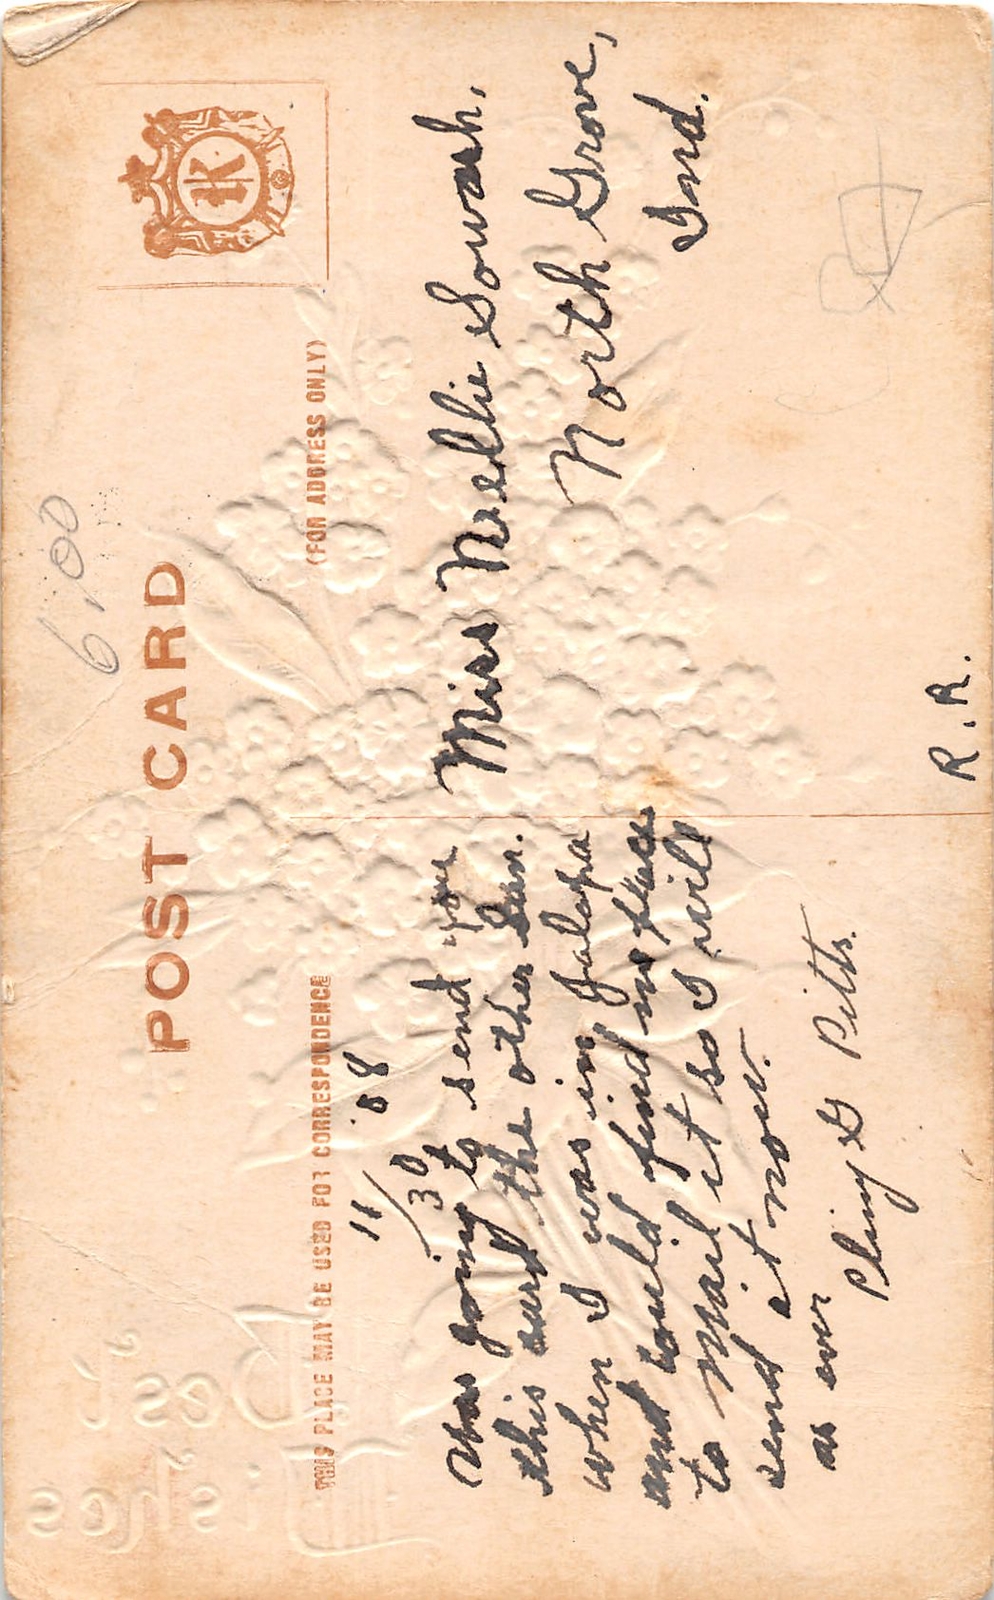 6.00
POST CARD
THIS PLACE MAY BE USED FOR CORRESPONDENCE
(FOR ADDRESS ONLY)
R
11/30 '08
Was going to send you
this card the other Sun.
when I was in Jalapa
and could find no place
to mail it so I will
send it now.
as ever
Pliny G Pitts.
Miss Nellie Sowash,
North Grove,
Ind.
R.R.
Best
Wishes